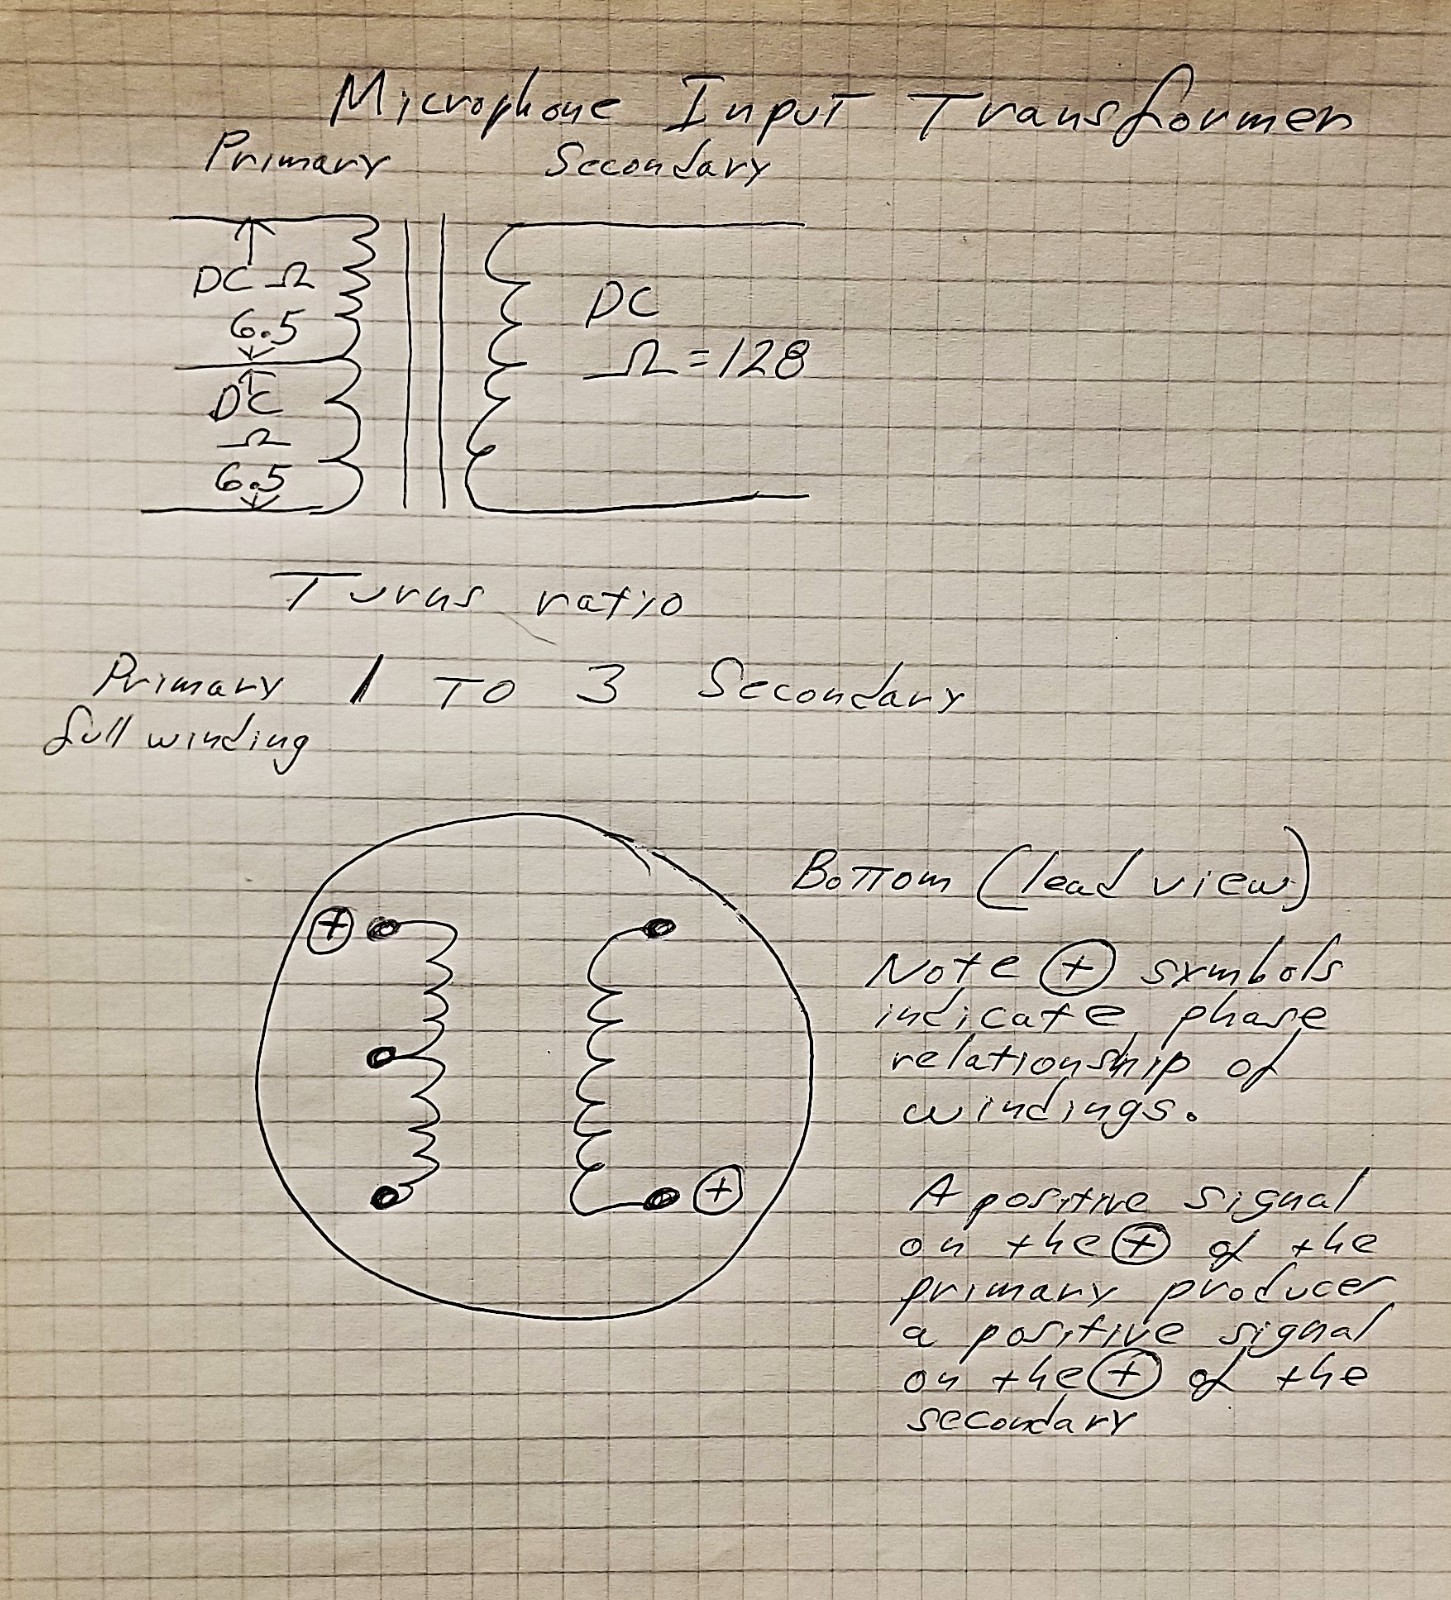 Microphone Input Transformer
Primary Secondary
DC Ω
6.5
DC
Ω
6.5
DC
Ω = 128
Turns ratio
Primary 1 TO 3 Secondary
full winding
Bottom (lead view)
Note ⊕ symbols
indicate phase
relationship of
windings.
⊕
⊕
A positive signal
on the ⊕ of the
primary produces
a positive signal
on the ⊕ of the
secondary